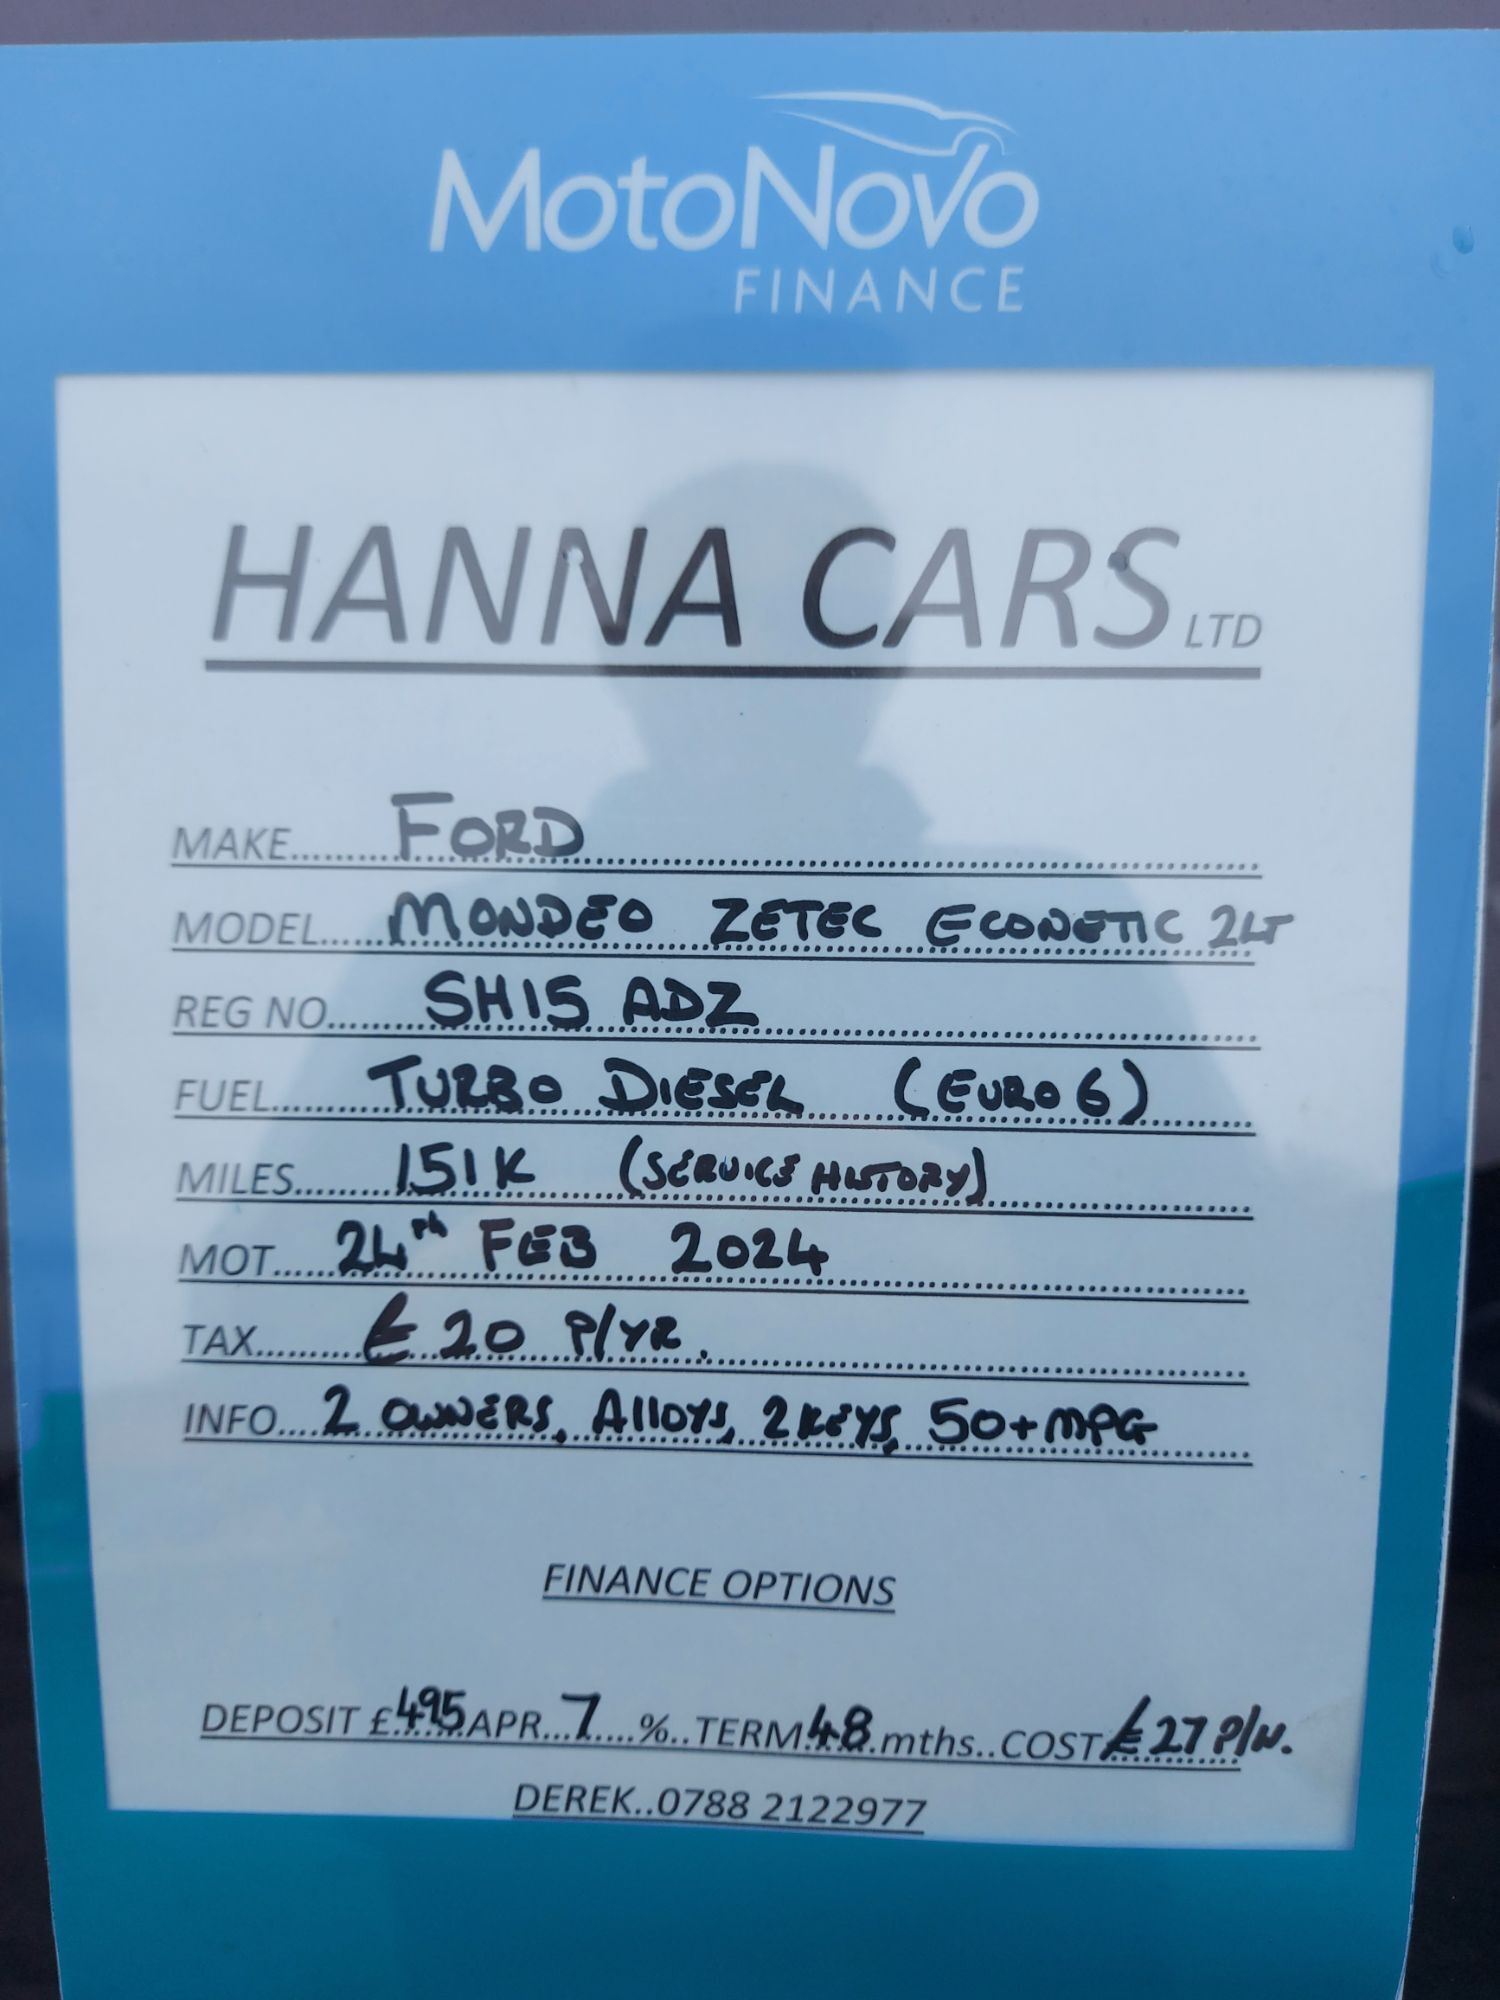 MotoNovo
FINANCE
HANNA CARS LTD
MAKE......... FORD
MODEL..... MONDEO ZETEC ECONETIC 2LT
REG NO......... SH15 ADZ
FUEL......... TURBO DIESEL (EURO 6)
MILES......... 151K (SERVICE HISTORY)
MOT..... 24TH FEB 2024
TAX......... £20 P/YR.
INFO.... 2 OWNERS, Alloys, 2 KEYS, 50+MPG
FINANCE OPTIONS
DEPOSIT £495 APR...7....%..TERM 48.mths..COST £27 P/W.
DEREK..0788 2122977